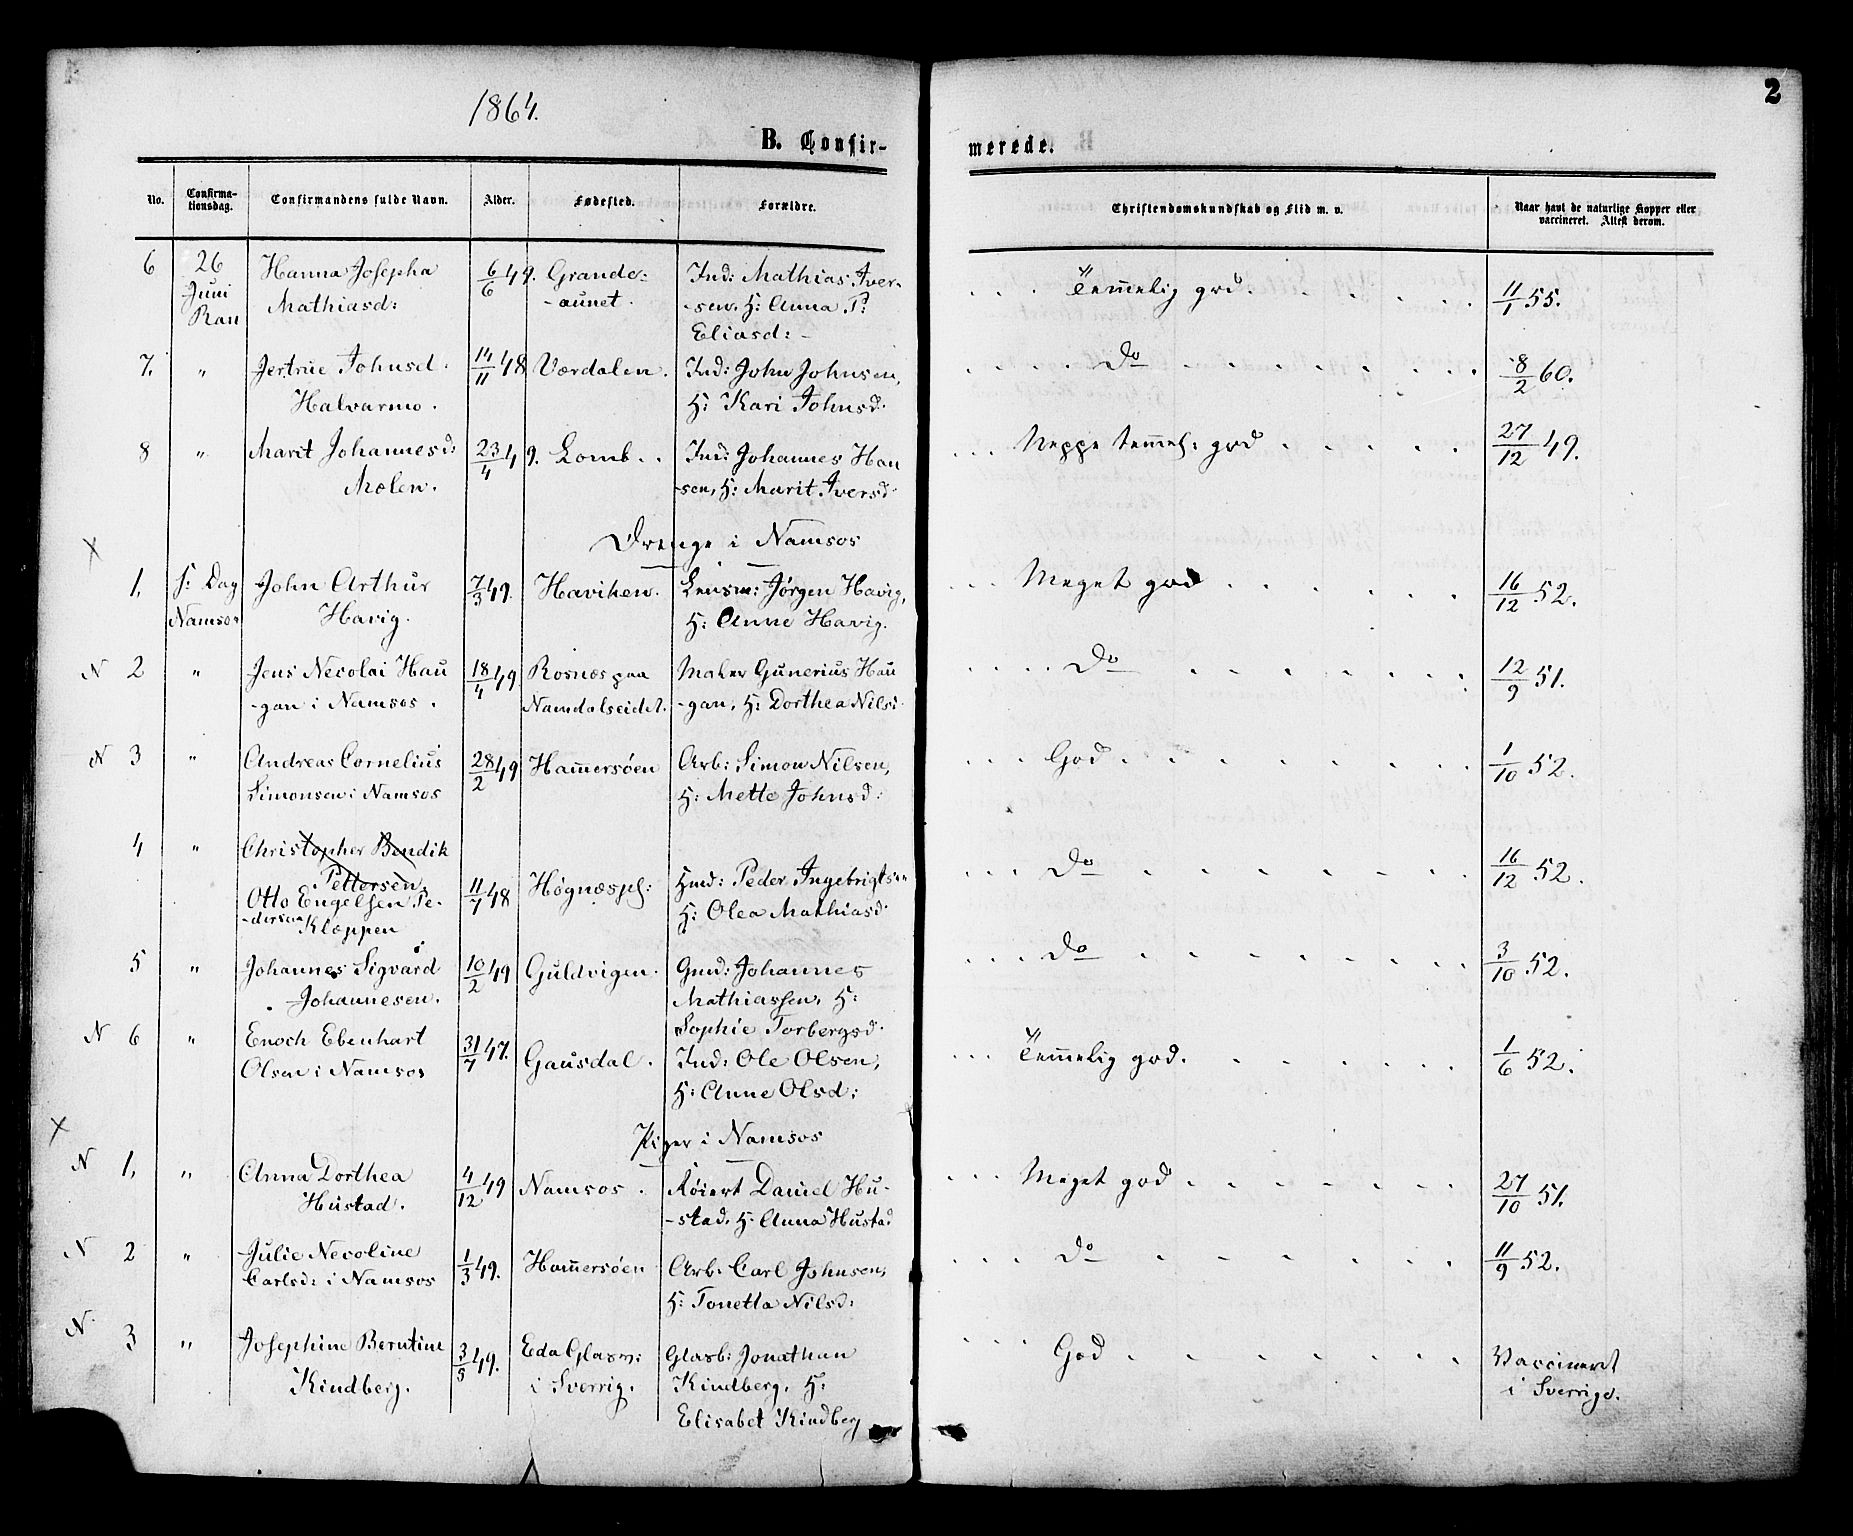 2
1864.
B. Confir-
merede.
No.
Confirma-
tionsdag.
Confirmandens fulde Navn.
Alder.
Fødested.
Forældre.
Christendomskundskab og Flid m. v.
Naar havt de naturlige Kopper eller
vaccineret. Attest derom.
6 26 Hanna Josepha 6/6 49. Grande- Ind: Mathias Iver- Temmelig god. 11/1 55.
Juni Mathiasd: -aunet. -sen. H: Anna P:
Ran Eliasd:
7. " Jertrue Johnsd. 14/11 48 Værdalen. Ind: John Johnsen, Do 8/2 60.
Halvarmo. H: Kari Johnsd.
8 " Marit Johannesd: 23/4 49. Lomb.. Ind: Johannes Han Neppe temel: god 27/12 49.
Mølen. -sen, H: Marit Iversd
Drenge i Namsos
X
1, s: Dag John Arthur 7/3 49. Haviken. Lensm: Jørgen Havig, Meget god 16/12 52.
Namsos Havig. H: Anne Havig.
N 2 " Jens Necolai Hau 18/4 49 Rosnæs paa Maler Gunerius Hau Do 12/9 51.
-gan i Namsos. Namdalseidet. -gan, H: Dorthea Nilsd:
N 3 " Andreas Cornelius 28/2 49 Hammersøen Arb: Simon Nilsen, God 1/10 52.
Simonsen i Namsos H: Mette Johnsd:
4 " Christopher Bendik
Pettersen.
Otto Engelsen Pe- 11/7 48 Høgnæspl: Hmd: Peder Ingebrigtsen Do 16/12 52.
-dersen Klæppen H: Olea Mathiasd.
5 " Johannes Sigvard 10/2 49 Guldvigen. Gmd: Johannes Do 3/10 52.
Johannesen. Mathiassen, H:
Sophie Torbergsd.
N 6 " Enoch Ebenhart 31/7 47. Gausdal. Ind: Ole Olsen, Temmelig god. 1/6 52.
Olsen i Namsos H: Anne Olsd:
X
Piger i Namsos
N 1, " Anna Dorthea 4/12 49 Namsos. Røiert Daniel Hu- Meget god 27/10 51.
Hustad. -stad, H. Anna Hustad
N 2 " Julie Necoline 1/3 49. Hammersøen Arb. Carl Johnsen, Do 11/9 52.
Carlsd: i Namsos H: Tonetta Nilsd:
N. 3 " Josephine Berntine 3/5 49. Eda Glasv: Glasb: Jonathan God Vaccineret
Kindberg. i Sverrig. Kindberg. H: i Sverrige.
Elisabet Kindberg